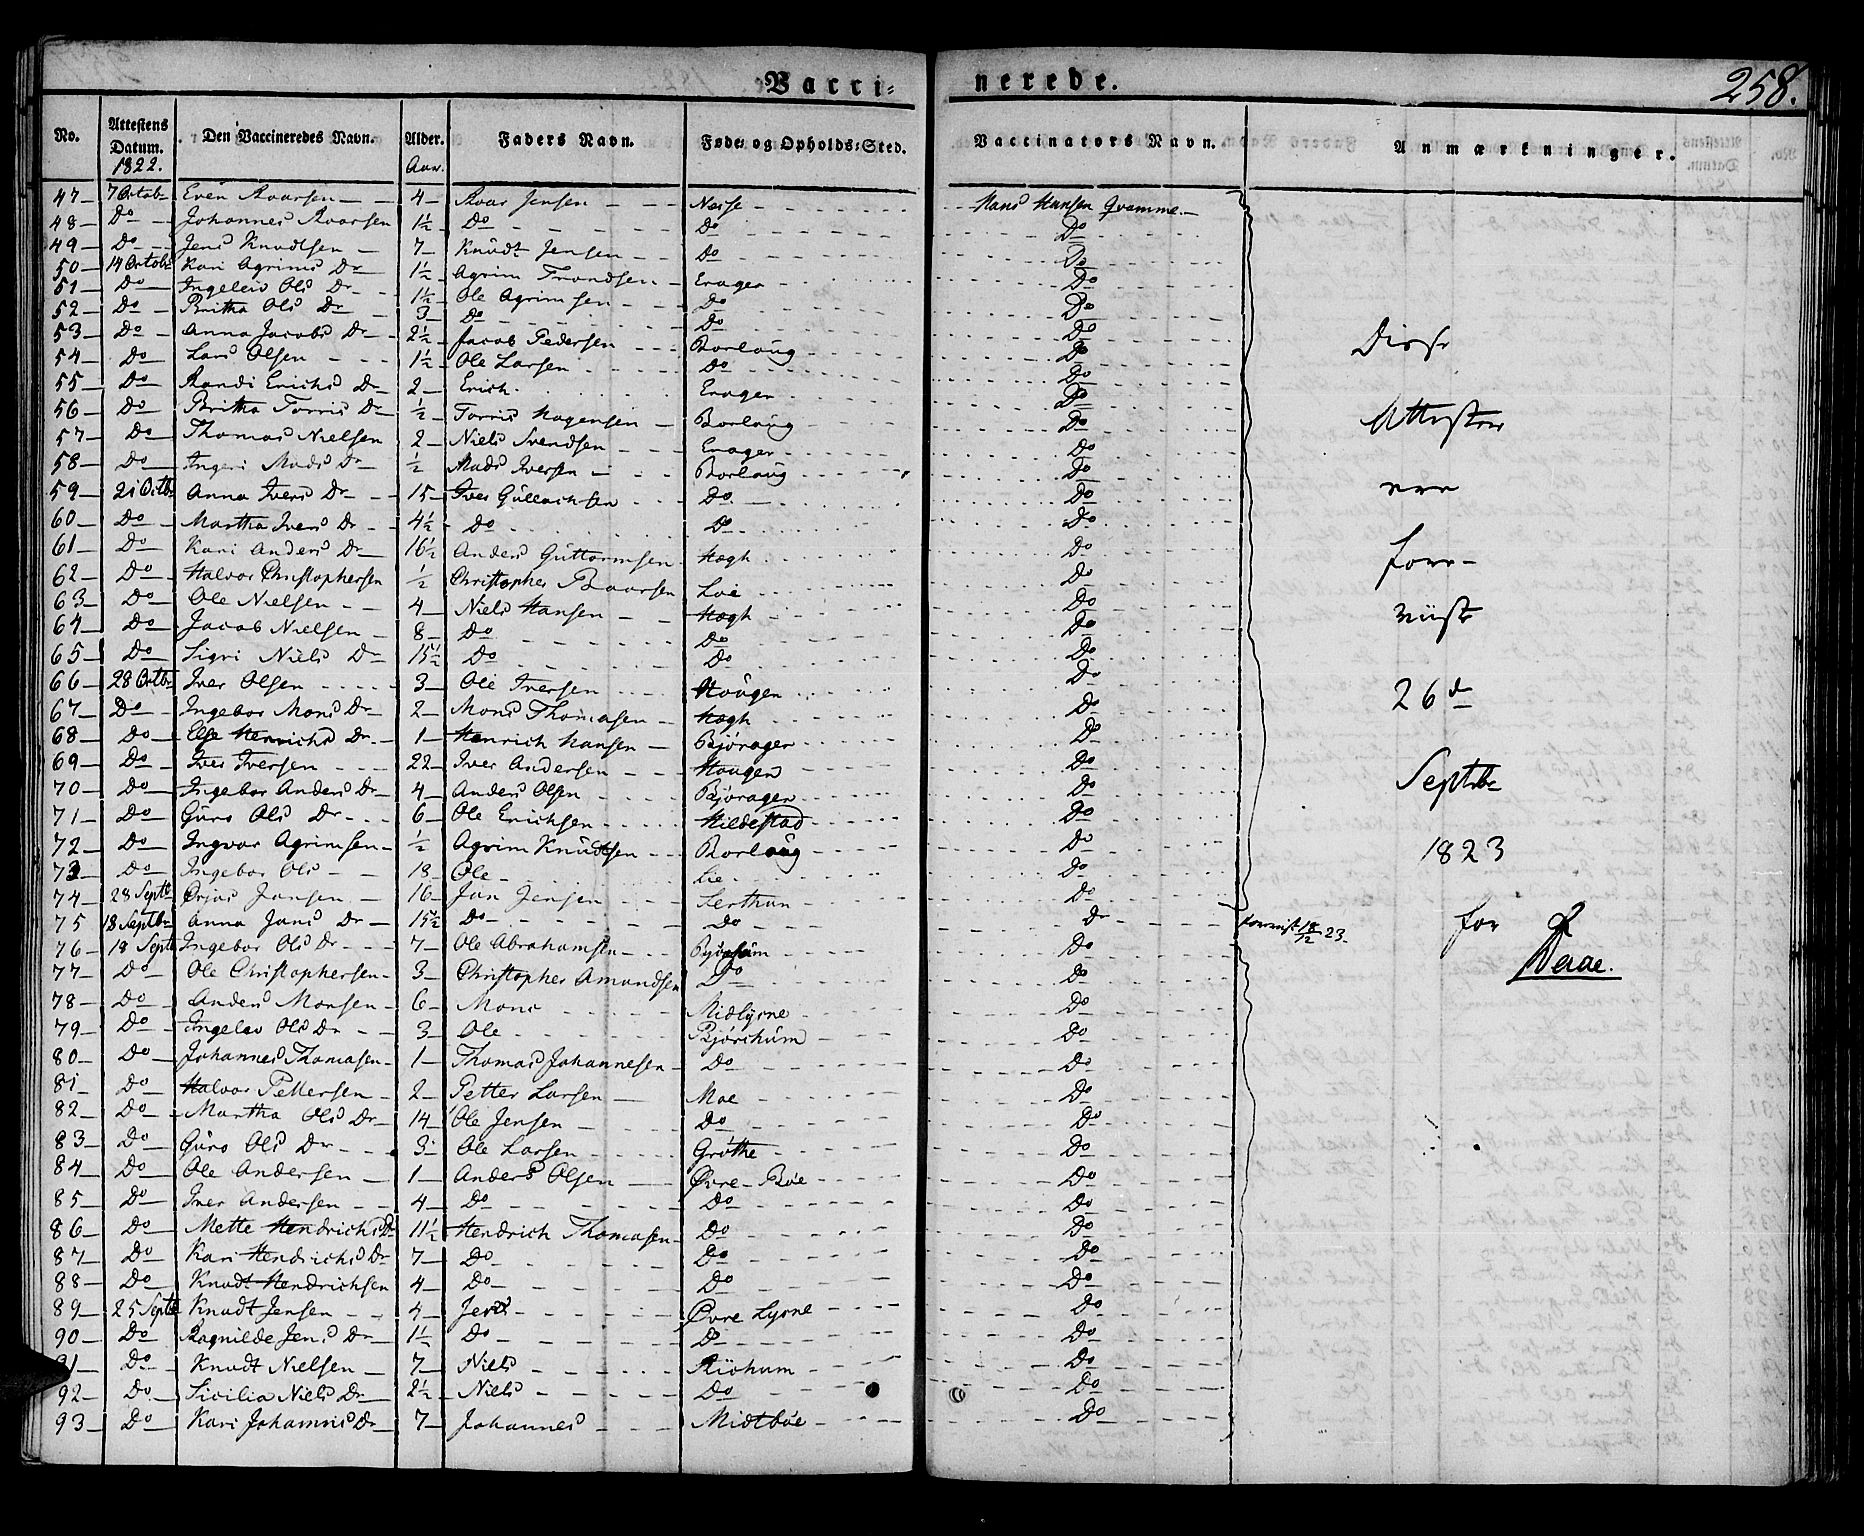 Vacci=
nerede.
258.
No. Attestens Datum. 1822. Den Vaccineredes Navn. Alder. Aar. Faders Navn. Føde og Opholds=Sted. Vaccinators Navn. Anmærkninger.
47 7 Octob Even Ivarsen 4 Ivar Jensen Næse Hans Hansen Qvamme
48 Do Johannes Ivarsen 1½ Do Do Do
49 Do Jens Knudtsen 7 Knudt Jensen Do Do
50 14 Octob Kari Agrims Dr 1½ Agrim Trondsen Erager Do
51 Do Ingeleiv Ols Dr 1½ Ole Agrimsen Do Do
52 Do Britha Ols Dr 3 Do Do Do
53 Do Anna Jacobs Dr 2½ Jacob Pedersen Borlaug Do
54 Do Lars Olsen 1½ Ole Larsen Do Do
55 Do Randi Erichs Dr 2 Erich Erager Do
56 Do Britha Torris Dr ½ Torris Hagensen Borlaug Do
57 Do Thomas Nielsen 2 Niels Svendsen Erager Do
58 Do Ingeri Mads Dr ½ Mads Iversen Borlaug Do
59 21 Octb Anna Ivers Dr 15 Iver Gullachsen Do Do
60 Do Martha Ivers Dr 4½ Do Do Do
61 Do Kari Anders Dr 16½ Anders Guttormsen Hægh Do
62 Do Halvor Christophersen ½ Christopher Baarsen Loe Do
63 Do Ole Nielsen 4 Niels Hansen Hægh Do
64 Do Jacob Nielsen 8 Do Do Do
65 Do Sigri Niels Dr 15½ Do Do Do
66 28 Octb Iver Olsen 3 Ole Iversen Hougen Do
67 Do Ingebor Mons Dr 2 Mons Thomasen Hægh Do
68 Do Else Henrichs Dr 1 Henrich Hansen Bjørager Do
69 Do Iver Iversen 22 Iver Andersen Hougen Do
70 Do Ingebor Anders Dr 4 Anders Olsen Bjørager Do
71 Do Guro Ols Dr 6 Ole Erichsen Hildestad Do
72 Do Ingvor Agrimsen ½ Agrim Knudtsen Borlaug Do
73 Do Ingebor Ols 18 Ole Lie Do
74 28 Septb Jansen 16 Jan Jensen Do
75 18 Septbr Anna Jans Dr 15½ Do Do Do
76 18 Septb Ingebor Ols Dr 7 Ole Abrahamsen Do
77 Do Ole Christophersen 3 Christopher Amundsen Do Do
78 Do Anders Monsen 6 Mons Midlyrne Do
79 Do Ingelev Ols Dr 3 Ole Bjørchum Do
80 Do Johannes Thomasen 1 Thomas Johannesen Do Do
81 Do Halvor Pettersen 2 Petter Larsen Moe Do
82 Do Martha Ols Dr 14 Ole Jensen Do Do
83 Do Guro Ols Dr 3 Ole Larsen Grøthe Do
84 Do Ole Andersen 1 Anders Olsen Øvre-Bøe Do
85 Do Iver Andersen 4 Do Do Do
86 Do Mette Hendrichs Dr 11½ Hendrich Thomasen Do Do
87 Do Kari Hendrichs Dr 7 Do Do Do
88 Do Knudt Hendrichsen 4 Do Do Do
89 25 Septb Knudt Jensen 4 Jens Øvre Lyrne Do
90 Do Ragnilde Jens Dr 1½ Do Do Do
91 Do Knudt Nielsen 7 Niels Richum Do
92 Do Sicilia Niels Dr 2½ Niels Do Do
93 Do Kari Johannis Dr 7 Johannes Midtbøe Do
Disse
Attester
ere
fore-
viist
26de
Septbr
1823
for
Daae.
foreviist 18/12 23.